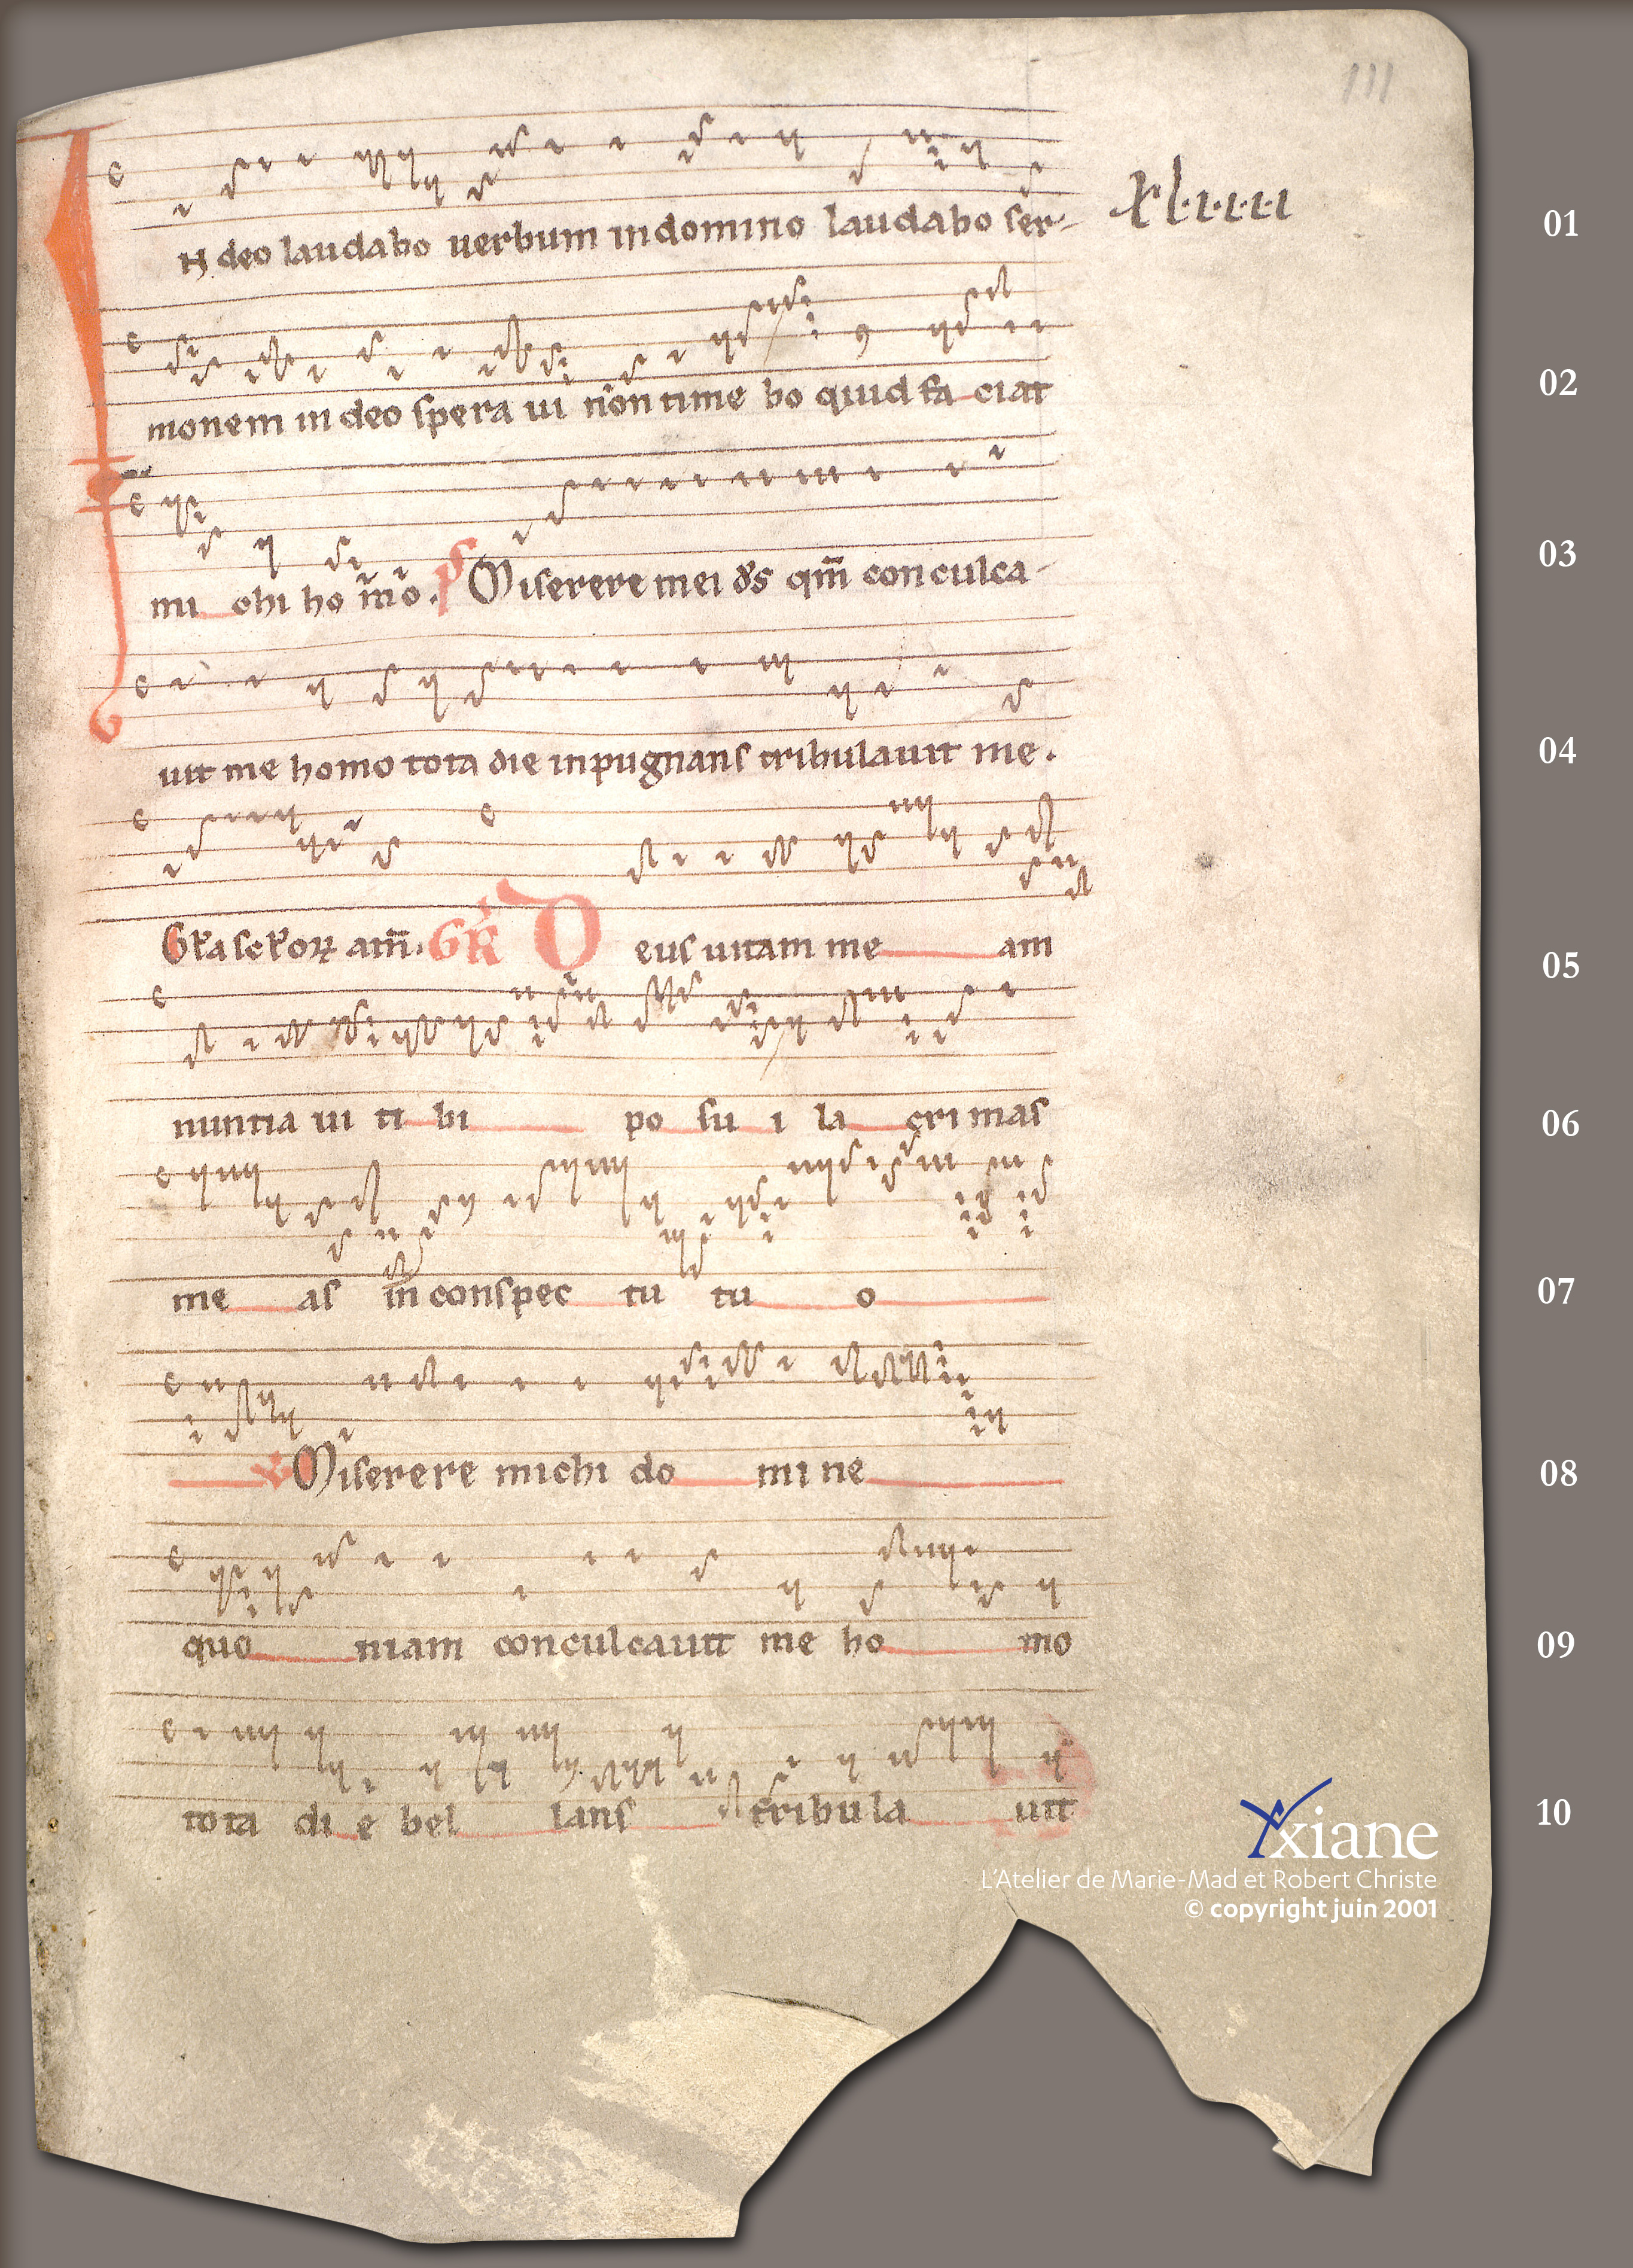 111
IN deo laudabo uerbum in domino laudabo ser-
xl·ı·ı·ı·ı
01
monem in deo spera ui non time bo quid fa ciat
02
mi chi ho mo. ps Miserere mei ds qm̄ conculca-
03
uit me homo tota die inpugnans tribulauit me.
04
am̄. GR Deus uitam me am
05
nuntia ui ti bi po su i la cri mas
06
me as in conspec tu tu o
07
Miserere michi do mi ne
08
quo niam conculcauit me ho mo
09
tota di e bel lans tribula uit
10
Axiane
L'Atelier de Marie-Mad et Robert Christe
© copyright juin 2001